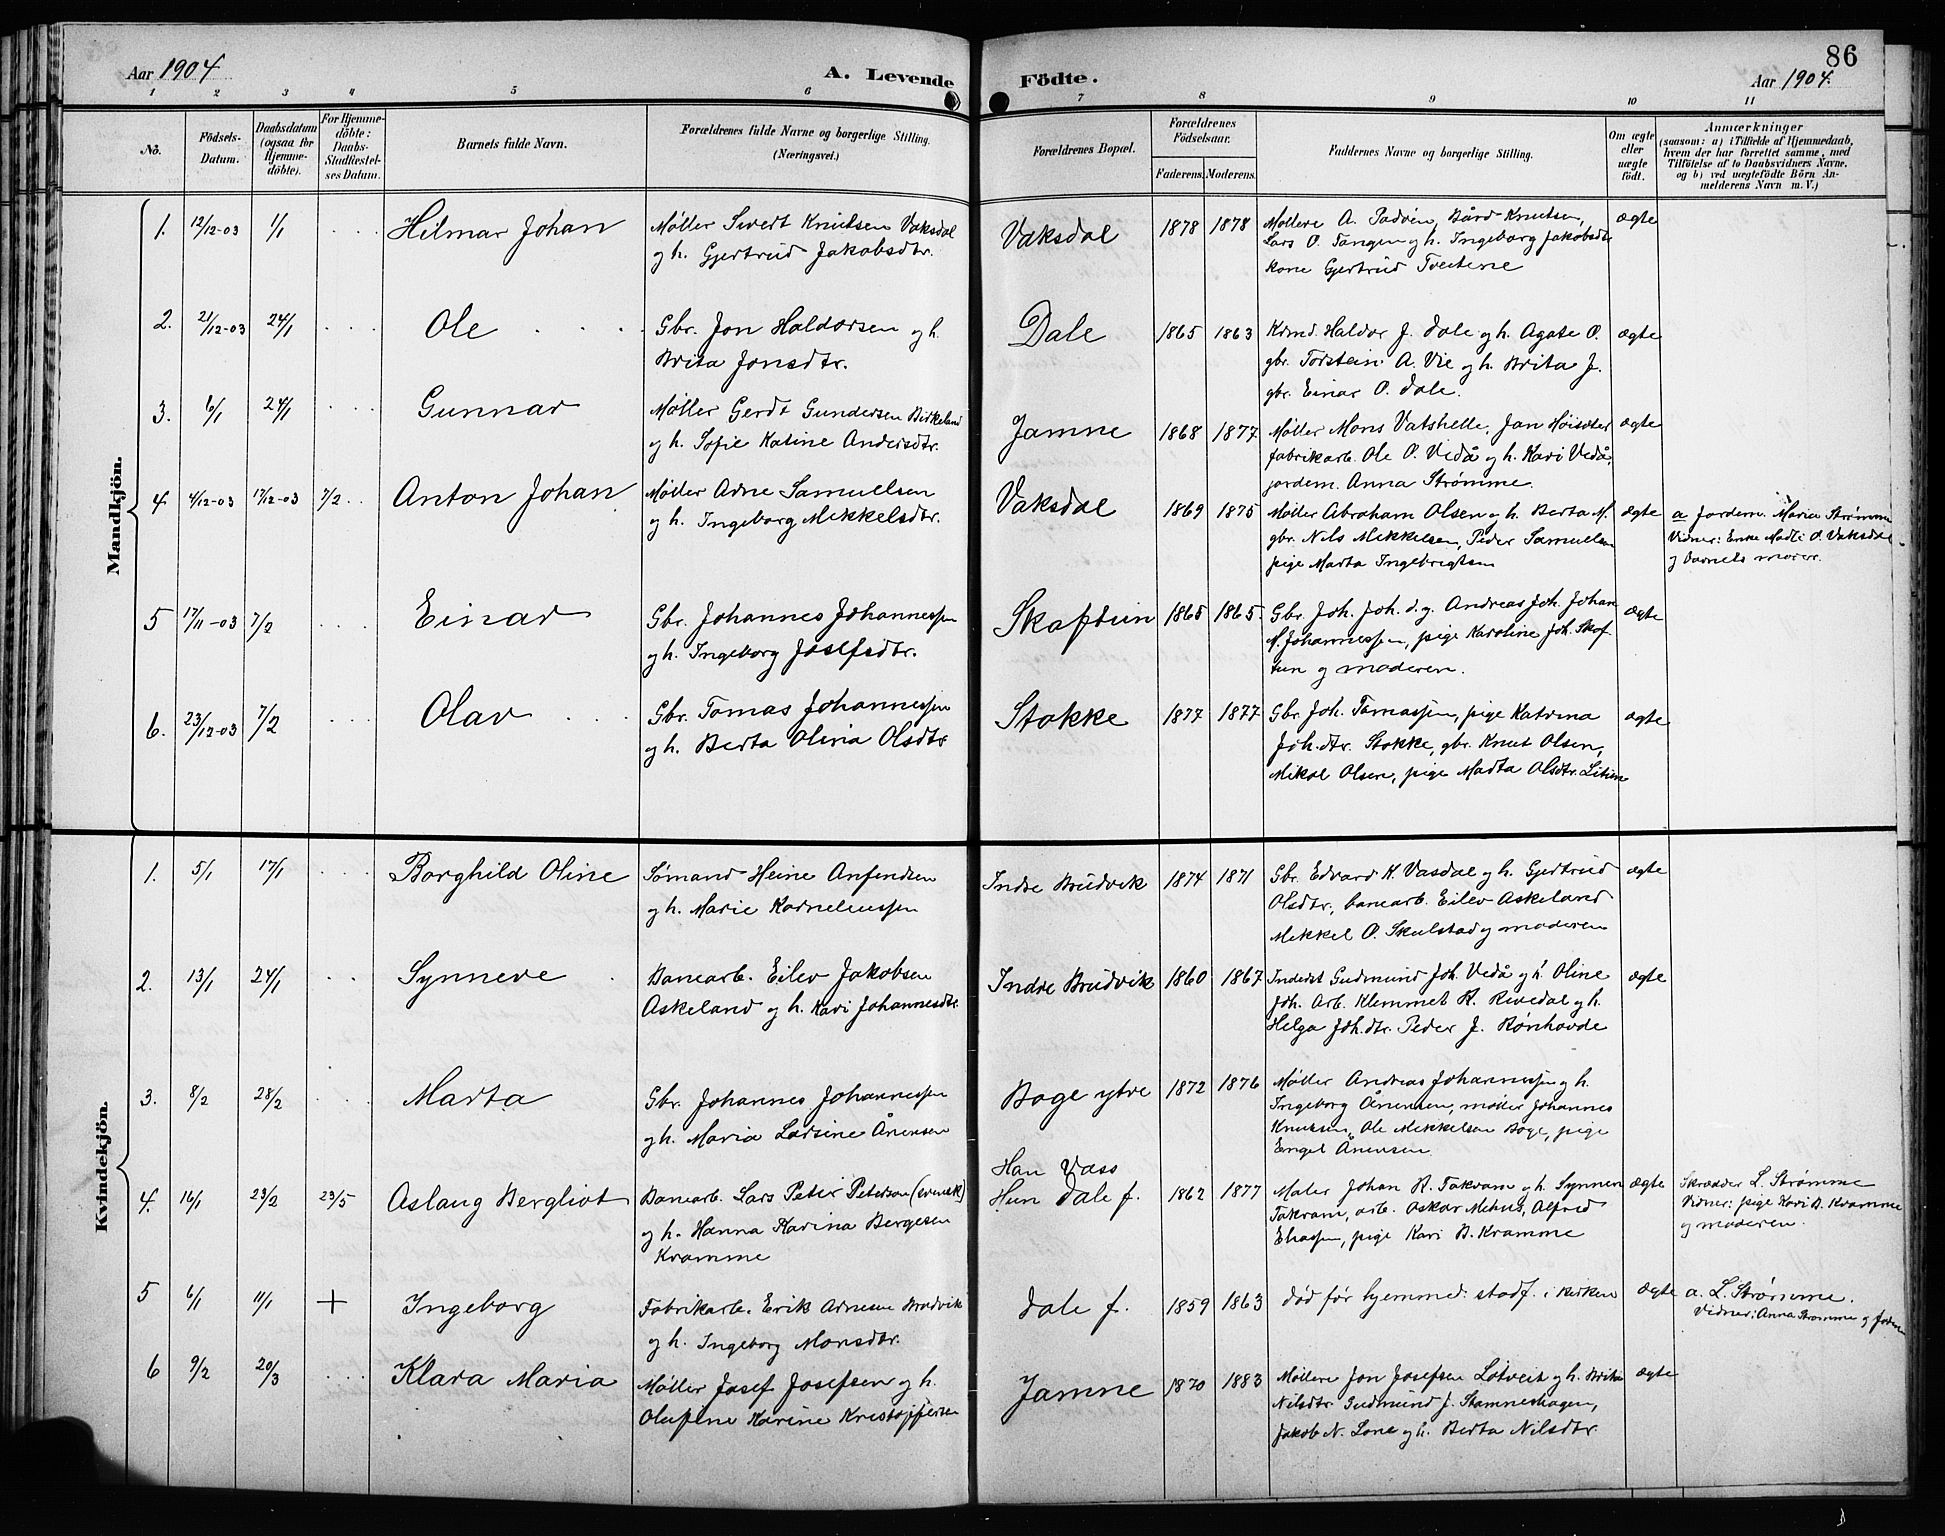 86
Aar 1904
A. Levende Födte.
Aar 1904.
1 2 3 4 5 6 7 8 9 10 11
No.
Födsels-
Datum.
Daabsdatum
(ogsaa for
Hjemme-
döbte).
For Hjemme-
döbte:
Daabs-
Stadfæstel-
ses Datum.
Barnets fulde Navn.
Forældrenes fulde Navne og borgerlige Stilling.
(Næringsvei.)
Forældrenes Bopæl.
Forældrenes
Födselsaar.
Faderens. Moderens.
Faddernes Navne og borgerlige Stilling.
Om ægte
eller
uægte
födt.
Anmærkninger
(saasom: a) i Tilfælde af Hjemmedaab,
hvem der har forrettet samme, med
Tilföielse af to Daabsvidners Navne.
og b) ved uægtefödte Börn An-
melderens Navn m. V.)
Mandkjön.
1. 12/12-03 1/1 Hilmar Johan
Møller Sivert Knutsen Vaksdal
og h. Gjertrud Jakobsdtr.
Vaksdal 1878 1878
Møllere A. Padøen, Bård Knutsen,
Lars O. Tangen og h. Ingeborg Jakobsdtr
kone Gjertrud Tveitene
ægte
2. 21/12-03 24/1 Ole
Gbr. Jon Haldorsen og h.
Brita Jonsdtr.
Dale 1865 1863
Krmd. Haldor J. Dale og h. Agate O.
gbr. Torstein A. Vie og h. Brita J.
gbr. Einar O. Dale.
ægte
3. 6/1 24/1 Gunnar
Møller Gerdt Gundersen Birkeland
og h. Sofie Katine Andersdtr.
Jamne 1868 1877
Møller Mons Vatshelle, Jan Hoisæter
fabrikarb. Ole O. Vedå og h. Kari Vedå,
jordem. Anna Strømme.
ægte
4. 4/12-03 17/12-03 7/2 Anton Johan
Møller Arne Samuelsen
og h. Ingeborg Mikkelsdtr.
Vaksdal 1869 1875
Møller Abraham Olsen og h. Berta M.
gbr. Nils Mikkelsen, Peder Samuelsen
pige Marta Ingebrigtsen
ægte
a Jordem. Maria Strømme
Vidner: Enke Madli O. Vaksdal
og barnets moder.
5 17/11-03 7/2 Einar
Gbr. Johannes Johannessen
og h. Ingeborg Josefsdtr.
Skaftun 1865 1865.
Gbr. Joh. Joh. d.y. Andreas Joh. Johan
M. Johannessen, pige Karoline Joh. Skof-
tun og moderen.
ægte
6. 23/12-03 7/2 Olav
Gbr. Tomas Johannessen
og h. Berta Olina Olsdtr
Stokke 1877 1877
Gbr. Joh. Tomassen, pige Katrina
Joh.dtr. Stokke, gbr. Knut Olsen,
Mikal Olsen, pige Marta Olsdtr.
ægte
Kvindekjön.
1. 5/1 17/1 Borghild Oline
Sømand Heine Anfindsen
og h. Marie Korneliussen
Indre Brudvik 1874 1871
Gbr. Edvard K. Vasdal og h. Gjertrud
Olsdtr., banearb. Eilev Askeland
Mikkel O. Skulstad og moderen
ægte
2. 13/1 24/1 Synneve
Banearb. Eilev Jakobsen
Askeland og h. Kari Johannesdtr.
Indre Brudvik 1860 1867
Inderst Gudmund Joh. Vedå og h. Oline
Joh. Arb. Klemmet K. Rivedal og h.
Helga Joh.dtr. Peder J. Rønhovde
ægte
3. 8/2 28/2 Marta
Gbr. Johannes Johannessen
og h. Maria Larsine Ånensen
Boge ytre 1872 1876
Møller Andreas Johannessen og h.
Ingeborg Ånensen, møller Johannes
Knutsen, Ole Mikkelsen Boge, pige
Engel Ånensen
4. 16/1 23/2 23/5 Aslaug Bergliot
Banearb. Lars Peter Peterson (svensk)
og h. Hanna Karina Bergesen
Kramme
Han Vass
Hun Dale f. 1862 1877
Maler Johan K. Takvam og h. Synneve
Takvam, arb. Oskar Mehus, Alfred
Eliassen, pige Kari B. Kramme
ægte
Skrædder L. Strømme
Vidner: pige Kari B. Kramme
og moderen.
5 6/1 11/1 + Ingeborg
Fabrikarb. Erik Arnesen Brudvik
og h. Ingeborg Monsdtr.
Dale f. 1859 1863
død før hjemmed. stadf. i kirken
ægte
a. L. Strømme.
Vidner: Anna Strømme og
6 9/2 20/3 Klara Maria
Møller Josef Josefsen og h.
Olufine Karine Kristoffersen
Jamne 1870 1883
Møllere Jon Josefsen Lotveit og h. Brita
Nilsdtr Gudmund J. Stamneshagen,
Jakob N. Lone og h. Berta Nilsdtr.
ægte